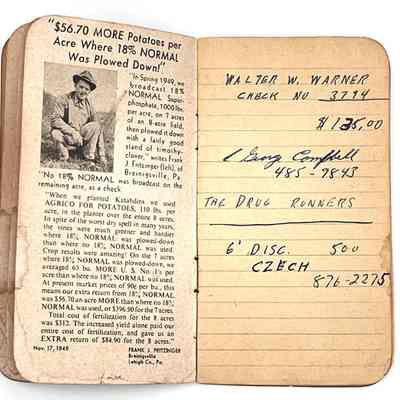 "$56.70 MORE Potatoes per
Acre Where 18% NORMAL
Was Plowed Down!"
"In Spring 1949, we
broadcast 18%
NORMAL Super-
phosphate, 1000 lbs.
per acre, on 7 acres
of an 8-acre field,
then plowed it down
with a fairly good
stand of timothy-
clover," writes Frank
J. Fritzinger (field) of
Breinigsville, Pa.
"No 18% NORMAL was broadcast on the
remaining acre, as a check.
"When we planted Katahdins we used
AGRICO FOR POTATOES, 110 lbs. per
acre, in the planter over the entire 8 acres.
In spite of the worst dry spell in many years,
the vines were much greener and hardier
where 18% NORMAL was plowed down
than where no 18% NORMAL was used.
Crop results were amazing! On the 7 acres
where 18% NORMAL was plowed down, we
averaged 63 bu. MORE U. S. No. 1's per
acre than where no 18% NORMAL was used.
At present market prices of 90c per bu., this
means our extra return from 18% NORMAL
was $56.70 an acre MORE than where no 18%
NORMAL was used, or $396.90 for the 7 acres.
Total cost of fertilization for the 8 acres
was $312. The increased yield alone paid our
entire cost of fertilization, and gave us an
EXTRA return of $84.90 for the 8 acres.
Nov. 17, 1949
FRANK J. FRITZINGER
Breinigsville
Lehigh Co., Pa.
WALTER W. WARNER
CHECK NO 3794
$135.00
Georg Campbell
485-9843
THE DRUG RUNNERS
6' DISC. 500
CZECH
876-2275